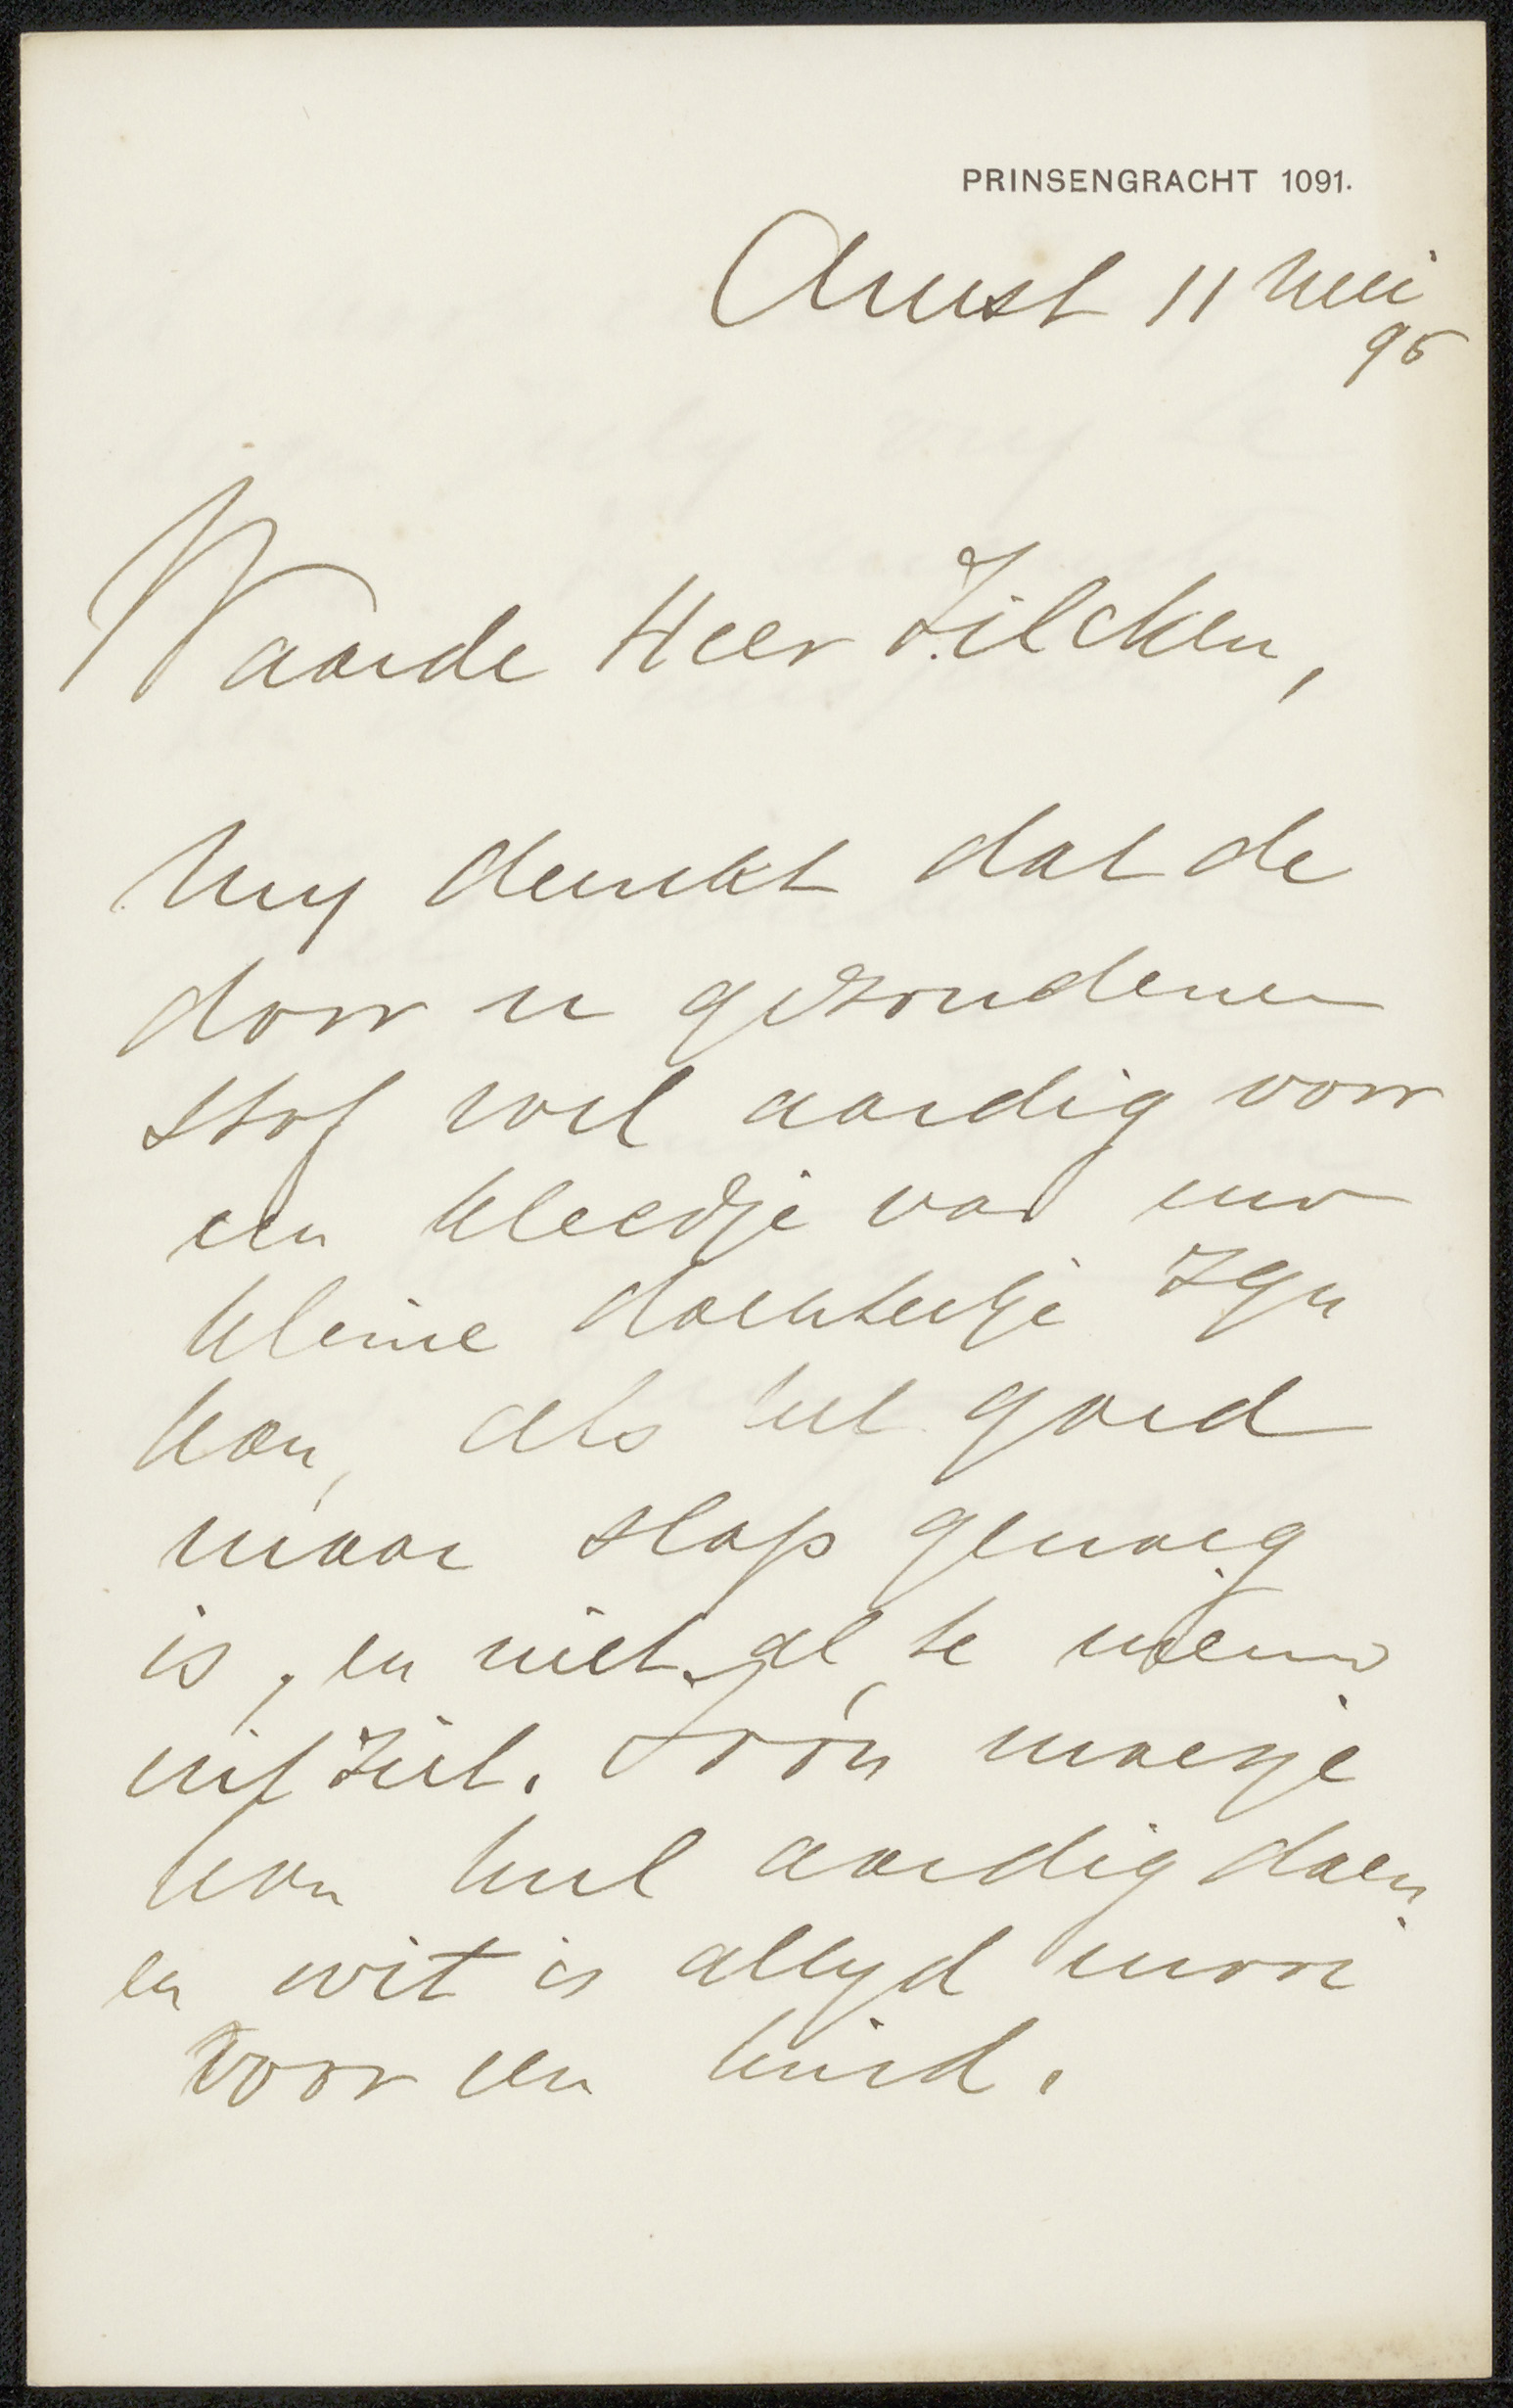 PRINSENGRACHT 1091.
Amst 11 Mei
95
Waarde Heer Zilcken,
My denkt dat de
door u gezondene
stof wel aardig voor
een kleedje van uw
kleine dochtertje zyn
kan, als het goed
maar slap genoeg
is, en niet al te nieuw
uitziet. Zoo'n
kan heel aardig doen
en wit is altyd mooi
voor een kind.